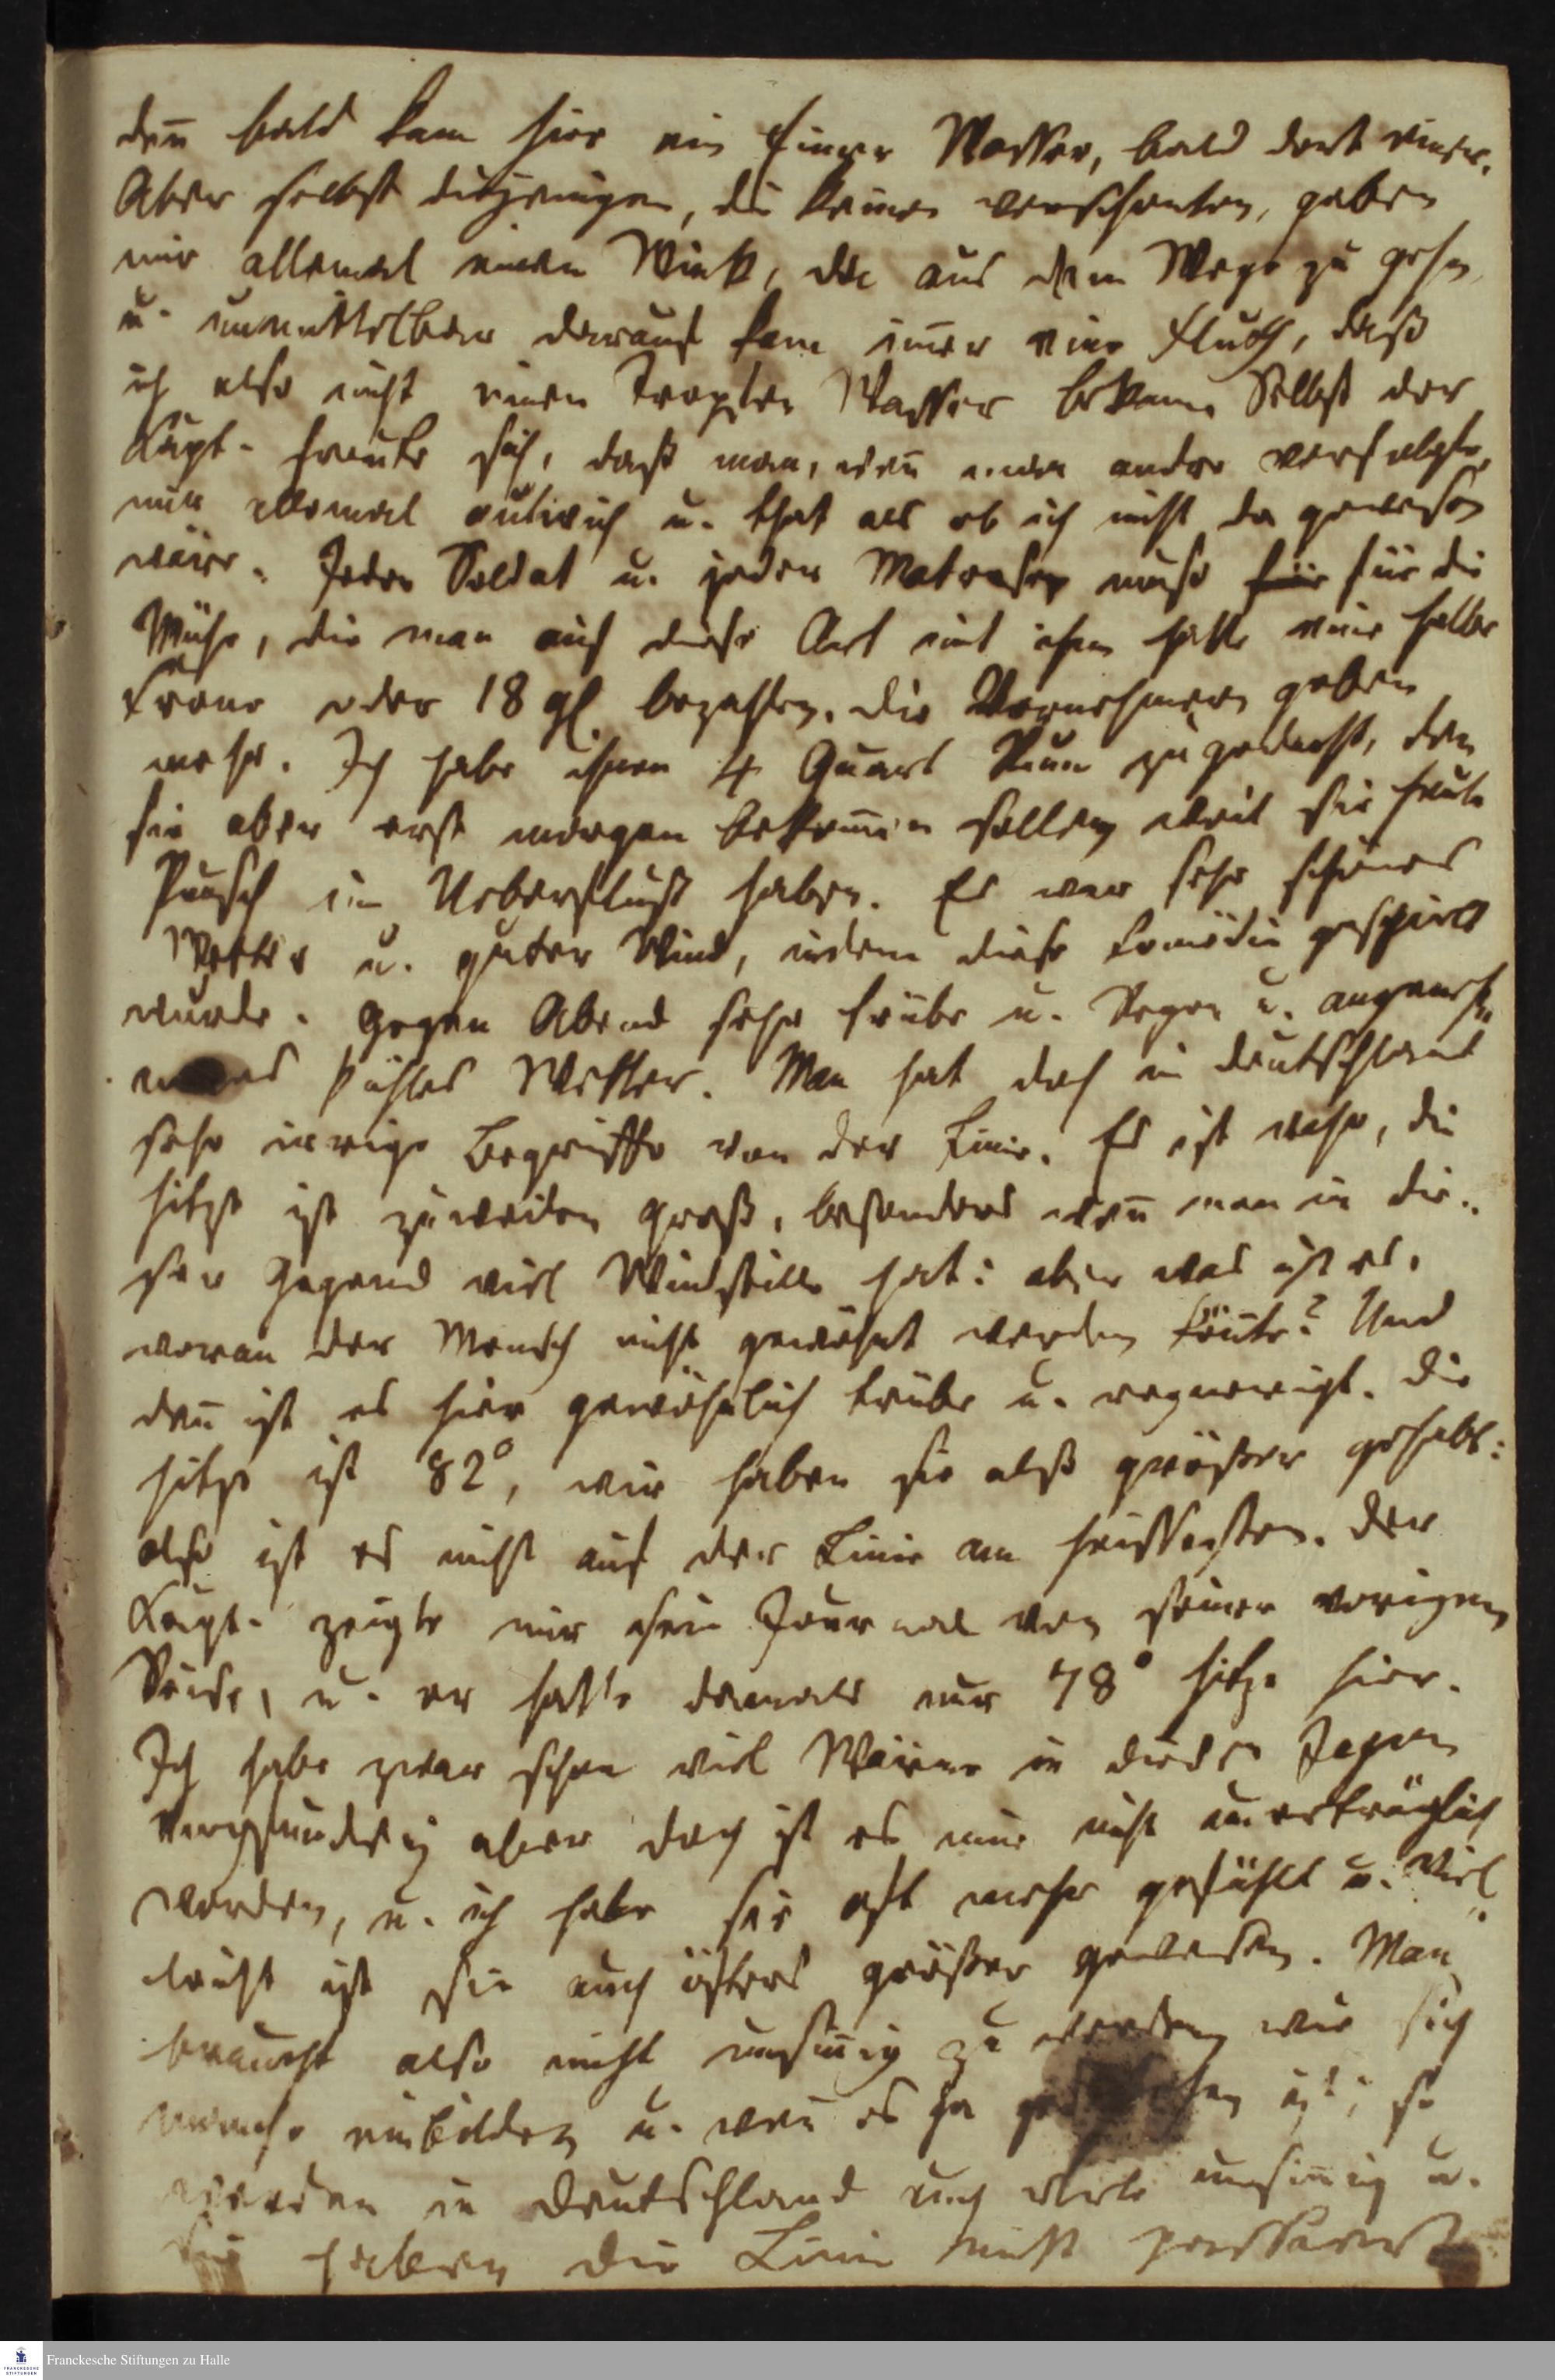 deñ bald kam hier ein Eimer Wasser, bald dort einer.
Aber selbst diejenigen, die keinen verschonten, gaben
mir allemal einen Wink, da aus dem Wege zu gehn,
u. unmittelbar darauf kam im̃er eine Fluth, daß
ich also nicht einen Tropfen Wasser bekam. Selbst der
Capt. freute sich, daß man, weñ man andre verfolgte,
mir allemal auswich u. that als ob ich nicht da gewesen
wäre. Jeder Soldat u. jeder Matrose muß für für die
Mühe, die man auf diese Art mit ihm hatte eine halbe
Crone oder 18 gl. bezahlen. Die Vornehmern geben
mehr. Ich habe ihnen 4 Quart Rum zugedacht, den
sie aber erst morgen bekom̃en sollen, weil sie heute
Punsch im Ueberfluß haben. Es war sehr schönes
Wetter u. guter Wind, indem diese Comödie gespielt
wurde. Gegen Abend sehr trübe u. Regen u. angeneh-
mes kühles Wetter. Man hat doch in Deutschland
sehr irrige Begriffe von der Linie. Es ist wahr, die
Hitze ist zuweilen groß, besonders weñ man in die-
ser Gegend viel Windstille hat: aber was ist es,
woran der Mensch nicht gewöhnt werden köñte? Und
dañ ist es hier gewöhnlich trübe u. regnerigt. Die
Hitze ist 82°, wir haben sie also größer gehabt:
also ist es nicht auf der Linie am heissesten. Der
Capt. zeigte mir sein Journal von seiner vorigen
Reise, u. er hatte damals nur 78° Hitze hier.
Ich habe zwar schon viel Wärme in diesen Tagen
aber doch ist es mir nicht unerträglich
worden, u. ich habe sie oft mehr gefühlt u. viel-
leicht ist sie auch öfters größer gewesen. Man
braucht also nicht unsiñig zu werden, wie sich
manche einbilden u. weñ es ja geschehen ist, so
werden in Deutschland auch viele unsiñig u.
sie haben die Linie nicht passieret
Franckesche Stiftungen zu Halle